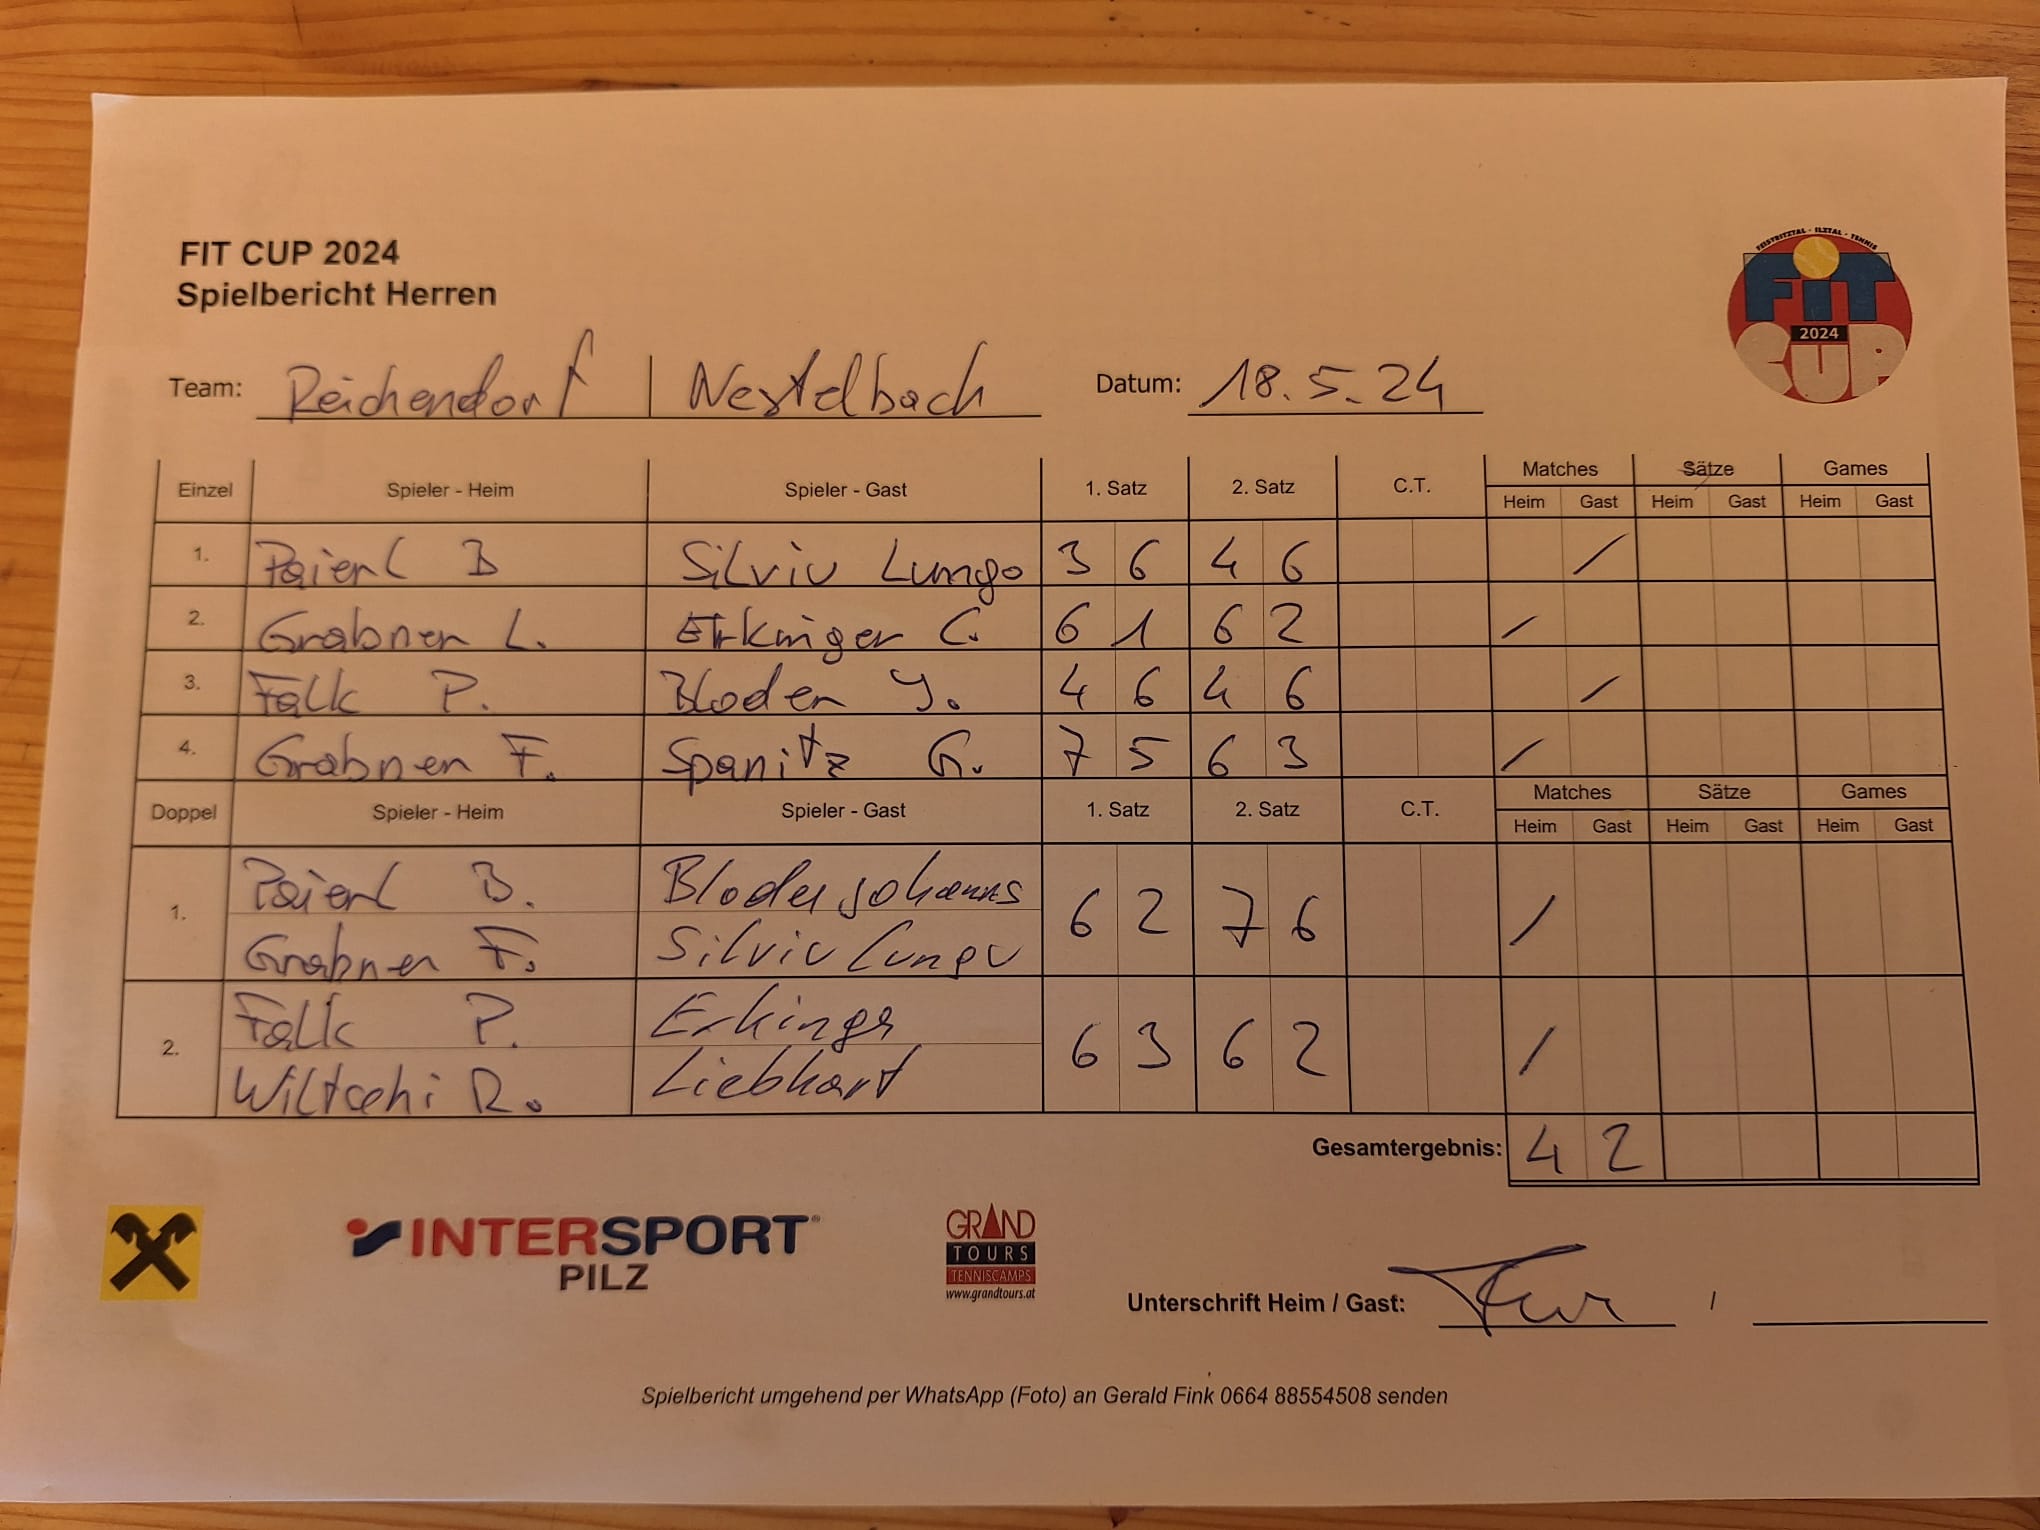 FIT CUP 2024
Spielbericht Herren
FEISTRITZTAL - ILZTAL - TENNIS
FiT
2024
CUP
Team: Reichendorf | Nestelbach Datum: 18.5.24
Einzel Spieler - Heim Spieler - Gast 1. Satz 2. Satz C.T. Matches Sätze Games
Heim Gast Heim Gast Heim Gast
1. Paierl B Silviu Lungo 3 6 4 6 /
2. Grabner L. Erkinger C. 6 1 6 2 /
3. Falk P. Bloder J. 4 6 4 6 /
4. Grabner F. Spanitz G. 7 5 6 3 /
Doppel Spieler - Heim Spieler - Gast 1. Satz 2. Satz C.T. Matches Sätze Games
Heim Gast Heim Gast Heim Gast
1. Paierl B. Bloder Johannes 6 2 7 6 /
Grabner F. Silviu Lungu
2. Falk P. Erkinger 6 3 6 2 /
Wiltschi R. Liebhart
Gesamtergebnis: 4 2
INTERSPORT
PILZ
GRAND
TOURS
TENNISCAMPS
www.grandtours.at
Unterschrift Heim / Gast: /
Spielbericht umgehend per WhatsApp (Foto) an Gerald Fink 0664 88554508 senden